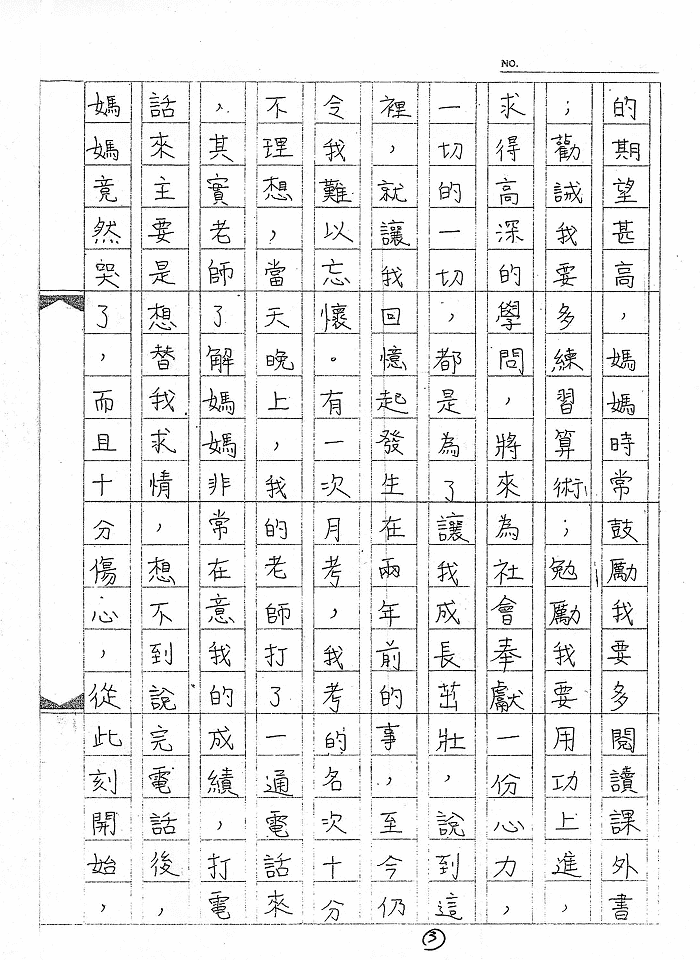 NO.
的期望甚高，媽媽時常鼓勵我要多閱讀課外書
；勸誡我要多練習算術；勉勵我要用功上進，
求得高深的學問，將來為社會奉獻一份心力，
一切的一切，都是為了讓我成長茁壯，說到這
裡，就讓我回憶起發生在兩年前的事，至今仍
令我難以忘懷。有一次月考，我考的名次十分
不理想，當天晚上，我的老師打了一通電話來
，其實老師了解媽媽非常在意我的成績，打電
話來主要是想替我求情，想不到說完電話後，
媽媽竟然哭了，而且十分傷心，從此刻開始，
3